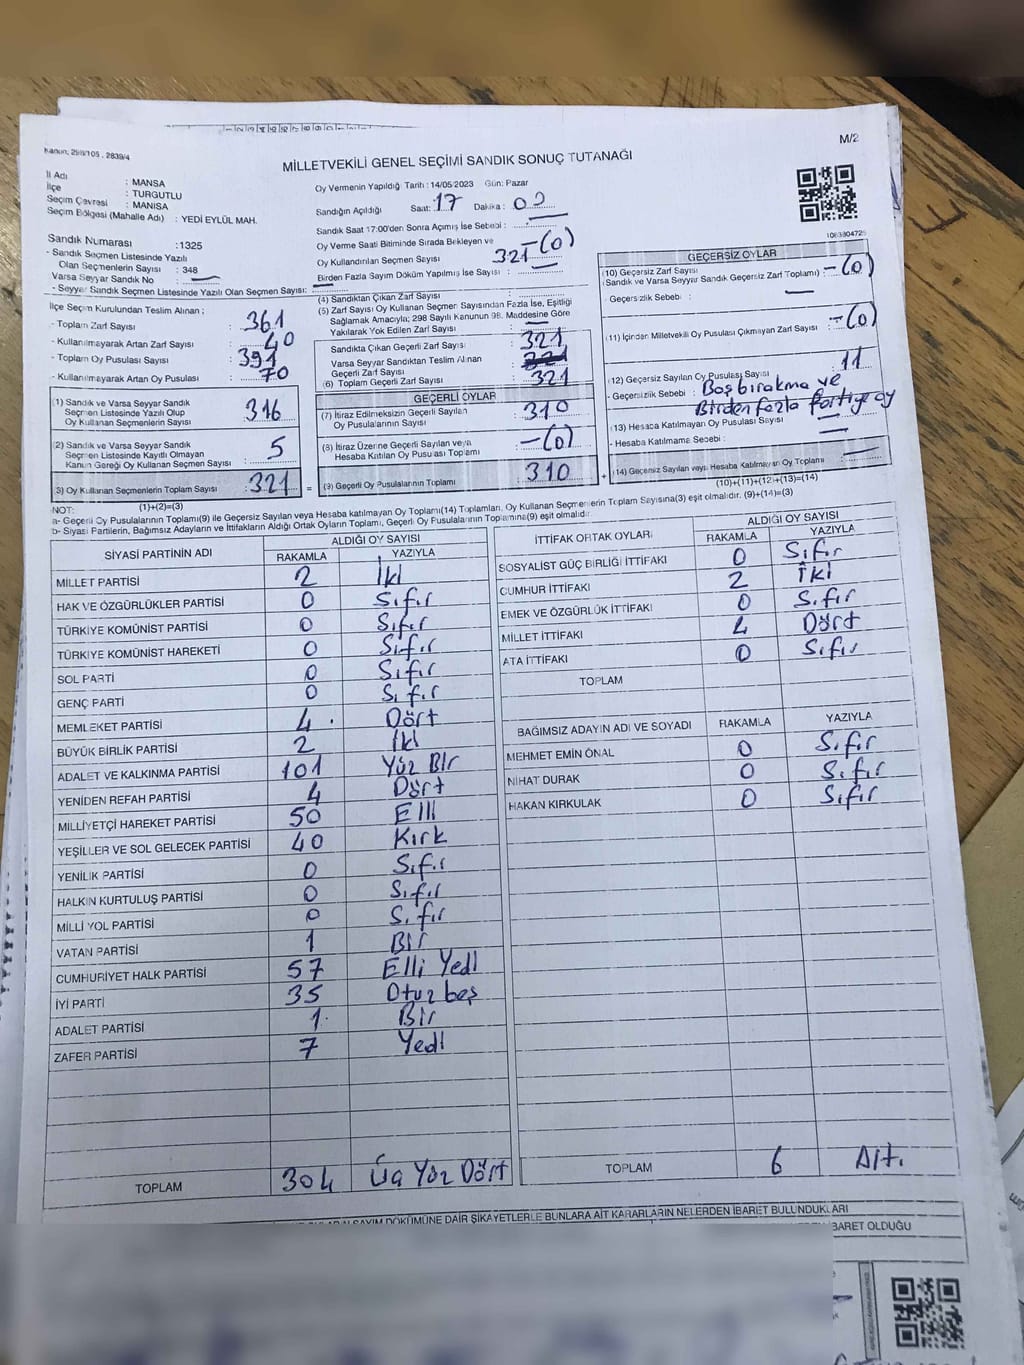 Kanun; 298/105 , 2839/4
M/2
MİLLETVEKİLİ GENEL SEÇİMİ SANDIK SONUÇ TUTANAĞI
İl Adı : MANİSA
İlçe : TURGUTLU
Seçim Çevresi : MANİSA
Seçim Bölgesi (Mahalle Adı) : YEDİ EYLÜL MAH.
Sandık Numarası :1325
- Sandık Seçmen Listesinde Yazılı
Olan Seçmenlerin Sayısı : 348
Varsa Seyyar Sandık No :
- Seyyar Sandık Seçmen Listesinde Yazılı Olan Seçmen Sayısı:
Oy Vermenin Yapıldığı Tarih : 14/05/2023 Gün: Pazar
Sandığın Açıldığı Saat: 17 Dakika :
Sandık Saat 17:00'den Sonra Açılmış İse Sebebi :
Oy Verme Saati Bitiminde Sırada Bekleyen ve -(0)
Oy Kullandırılan Seçmen Sayısı 321
Birden Fazla Sayım Döküm Yapılmış İse Sayısı :
İlçe Seçim Kurulundan Teslim Alınan ;
- Toplam Zarf Sayısı : 361
- Kullanılmayarak Artan Zarf Sayısı : 40
- Toplam Oy Pusulası Sayısı : 391
- Kullanılmayarak Artan Oy Pusulası : 70
(1) Sandık ve Varsa Seyyar Sandık
Seçmen Listesinde Yazılı Olup
Oy Kullanan Seçmenlerin Sayısı : 316
(2) Sandık ve Varsa Seyyar Sandık
Seçmen Listesinde Kayıtlı Olmayan
Kanun Gereği Oy Kullanan Seçmen Sayısı : 5
3) Oy Kullanan Seçmenlerin Toplam Sayısı : 321 =
(1)+(2)=(3)
(4) Sandıktan Çıkan Zarf Sayısı :
(5) Zarf Sayısı Oy Kullanan Seçmen Sayısından Fazla İse, Eşitliği
Sağlamak Amacıyla; 298 Sayılı Kanunun 98. Maddesine Göre
Yakılarak Yok Edilen Zarf Sayısı :
Sandıkta Çıkan Geçerli Zarf Sayısı : 321
Varsa Seyyar Sandıktan Teslim Alınan
Geçerli Zarf Sayısı
(6) Toplam Geçerli Zarf Sayısı : 321
GEÇERLİ OYLAR
(7) İtiraz Edilmeksizin Geçerli Sayılan
Oy Pusulalarının Sayısı : 310
(8) İtiraz Üzerine Geçerli Sayılan veya
Hesaba Katılan Oy Pusulası Toplamı : -(0)
(9) Geçerli Oy Pusulalarının Toplamı : 310 +
GEÇERSİZ OYLAR
(10) Geçersiz Zarf Sayısı
(Sandık ve Varsa Seyyar Sandık Geçersiz Zarf Toplamı) -(0)
- Geçersizlik Sebebi :
(11) İçinden Milletvekili Oy Pusulası Çıkmayan Zarf Sayısı : -(0)
(12) Geçersiz Sayılan Oy Pusulası Sayısı : 11
- Geçersizlik Sebebi : Boş bırakma ve
Birden fazla Partiye oy
(13) Hesaba Katılmayan Oy Pusulası Sayısı :
- Hesaba Katılmama Sebebi :
(14) Geçersiz Sayılan veya Hesaba Katılmayan Oy Toplamı :
(10)+(11)+(12)+(13)=(14)
NOT:
a- Geçerli Oy Pusulalarının Toplamı(9) ile Geçersiz Sayılan veya Hesaba katılmayan Oy Toplamı(14) Toplamları, Oy Kullanan Seçmenlerin Toplam Sayısına(3) eşit olmalıdır. (9)+(14)=(3)
b- Siyasi Partilerin, Bağımsız Adayların ve İttifakların Aldığı Ortak Oyların Toplamı, Geçerli Oy Pusulalarının Toplamına(9) eşit olmalıdır
SİYASİ PARTİNİN ADI ALDIĞI OY SAYISI
RAKAMLA YAZIYLA
MİLLET PARTİSİ 2 İki
HAK VE ÖZGÜRLÜKLER PARTİSİ 0 Sıfır
TÜRKİYE KOMÜNİST PARTİSİ 0 Sıfır
TÜRKİYE KOMÜNİST HAREKETİ 0 Sıfır
SOL PARTİ 0 Sıfır
GENÇ PARTİ 0 Sıfır
MEMLEKET PARTİSİ 4 Dört
BÜYÜK BİRLİK PARTİSİ 2 İki
ADALET VE KALKINMA PARTİSİ 101 Yüz Bir
YENİDEN REFAH PARTİSİ 4 Dört
MİLLİYETÇİ HAREKET PARTİSİ 50 Elli
YEŞİLLER VE SOL GELECEK PARTİSİ 40 Kırk
YENİLİK PARTİSİ 0 Sıfır
HALKIN KURTULUŞ PARTİSİ 0 Sıfır
MİLLİ YOL PARTİSİ 0 Sıfır
VATAN PARTİSİ 1 Bir
CUMHURİYET HALK PARTİSİ 57 Elli Yedi
İYİ PARTİ 35 Otuz beş
ADALET PARTİSİ 1 Bir
ZAFER PARTİSİ 7 Yedi
TOPLAM 304 Üç Yüz Dört
İTTİFAK ORTAK OYLARI ALDIĞI OY SAYISI
RAKAMLA YAZIYLA
SOSYALİST GÜÇ BİRLİĞİ İTTİFAKI 0 Sıfır
CUMHUR İTTİFAKI 2 İki
EMEK VE ÖZGÜRLÜK İTTİFAKI 0 Sıfır
MİLLET İTTİFAKI 4 Dört
ATA İTTİFAKI 0 Sıfır
TOPLAM
BAĞIMSIZ ADAYIN ADI VE SOYADI RAKAMLA YAZIYLA
MEHMET EMİN ÖNAL 0 Sıfır
NİHAT DURAK 0 Sıfır
HAKAN KIRKULAK 0 Sıfır
TOPLAM 6 Altı
SAYIM DÖKÜMÜNE DAİR ŞİKAYETLERLE BUNLARA AİT KARARLARIN NELERDEN İBARET BULUNDUKLARI
İBARET OLDUĞU